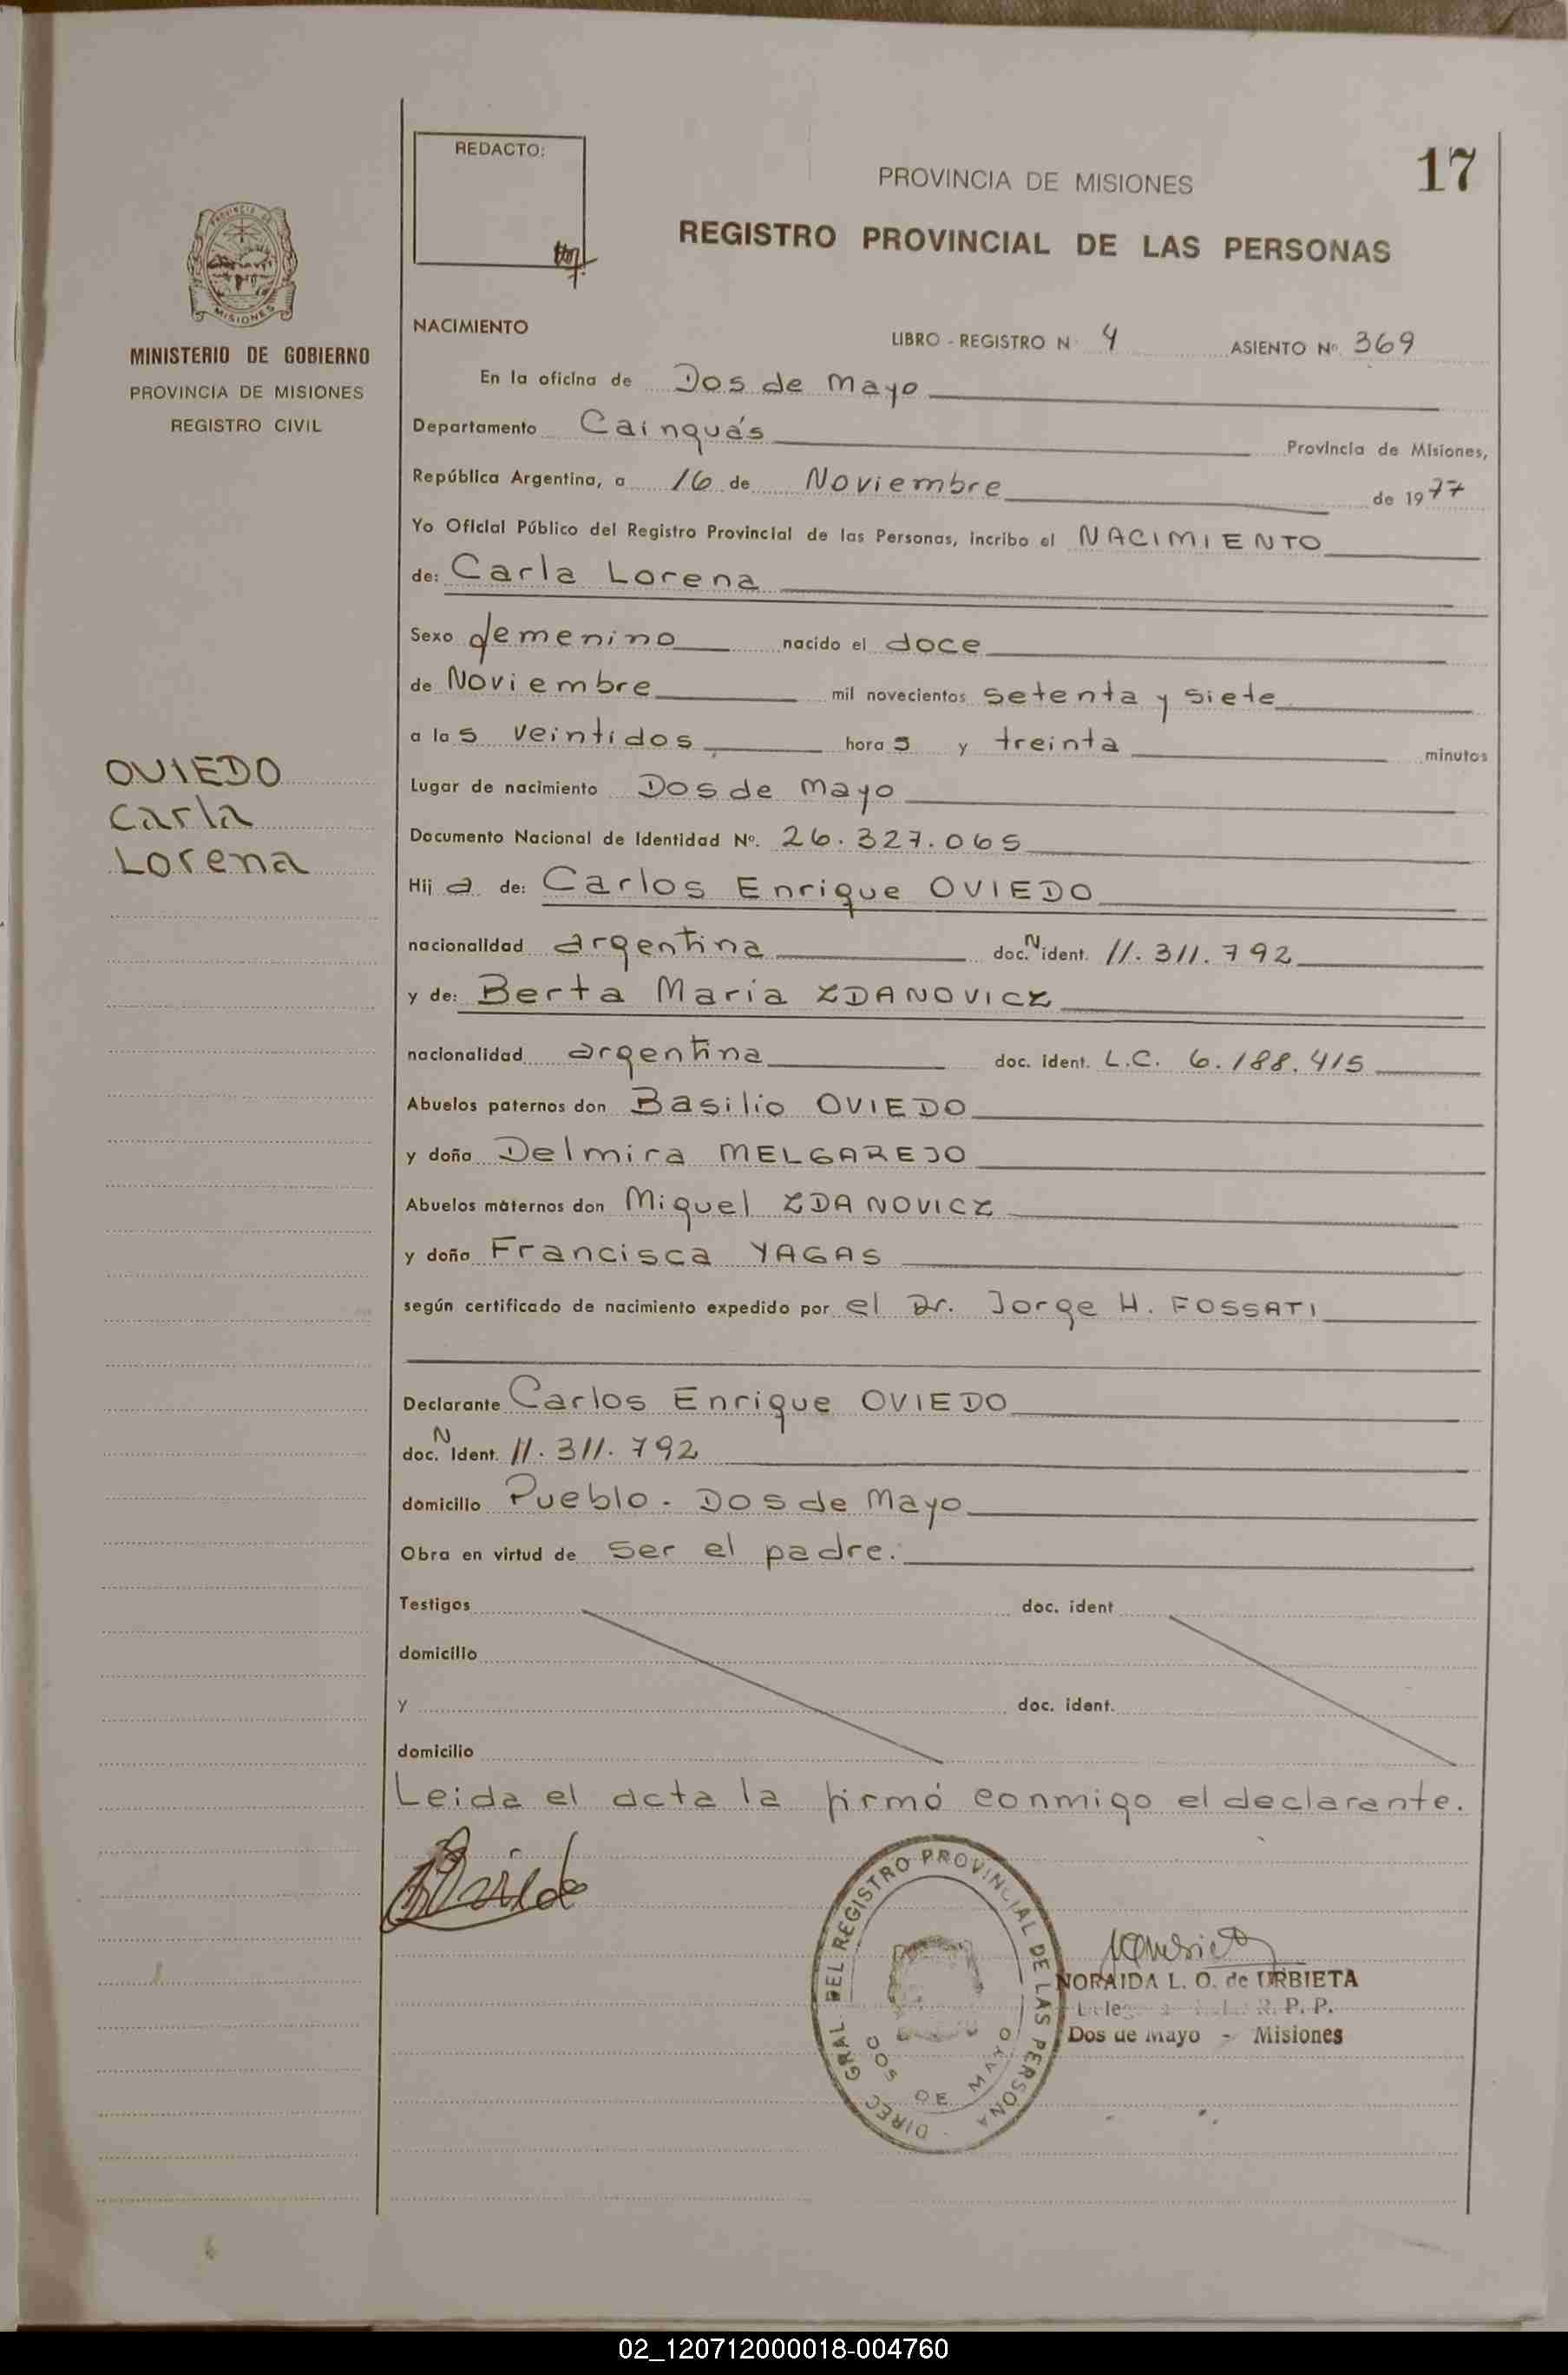 REDACTO:
17
PROVINCIA DE MISIONES
REGISTRO PROVINCIAL DE LAS PERSONAS
PROVINCIA DE
MISIONES
MINISTERIO DE GOBIERNO
PROVINCIA DE MISIONES
REGISTRO CIVIL
NACIMIENTO
LIBRO - REGISTRO N 4 ASIENTO Nº 369
En la oficina de Dos de Mayo
Departamento Cainguás Provincia de Misiones,
República Argentina, a 16 de Noviembre de 1977
Yo Oficial Público del Registro Provincial de las Personas, incribo el NACIMIENTO
de: Carla Lorena
Sexo femenino nacido el doce
de Noviembre mil novecientos setenta y siete
a las veintidos horas y treinta minutos
OVIEDO
Carla
Lorena
Lugar de nacimiento Dos de Mayo
Documento Nacional de Identidad Nº. 26.327.065
Hija de: Carlos Enrique OVIEDO
nacionalidad argentina doc. N ident. 11.311.792
y de: Berta Maria ZDANOVICZ
nacionalidad argentina doc. ident. L.C. 6.188.415
Abuelos paternos don Basilio OVIEDO
y doña Delmira MELGAREJO
Abuelos maternos don Miguel ZDANOVICZ
y doña Francisca YAGAS
según certificado de nacimiento expedido por el Dr. Jorge H. FOSSATI
Declarante Carlos Enrique OVIEDO
doc. N Ident. 11.311.792
domicilio Pueblo - Dos de Mayo
Obra en virtud de ser el padre.
Testigos doc. ident
domicilio
y doc. ident.
domicilio
Leida el acta la firmó conmigo el declarante.
DIREC GRAL DEL REGISTRO PROVINCIAL DE LAS PERSONA
DOS DE MAYO
NORAIDA L. O. de URBIETA
R. P. P.
Dos de Mayo - Misiones
02_120712000018-004760